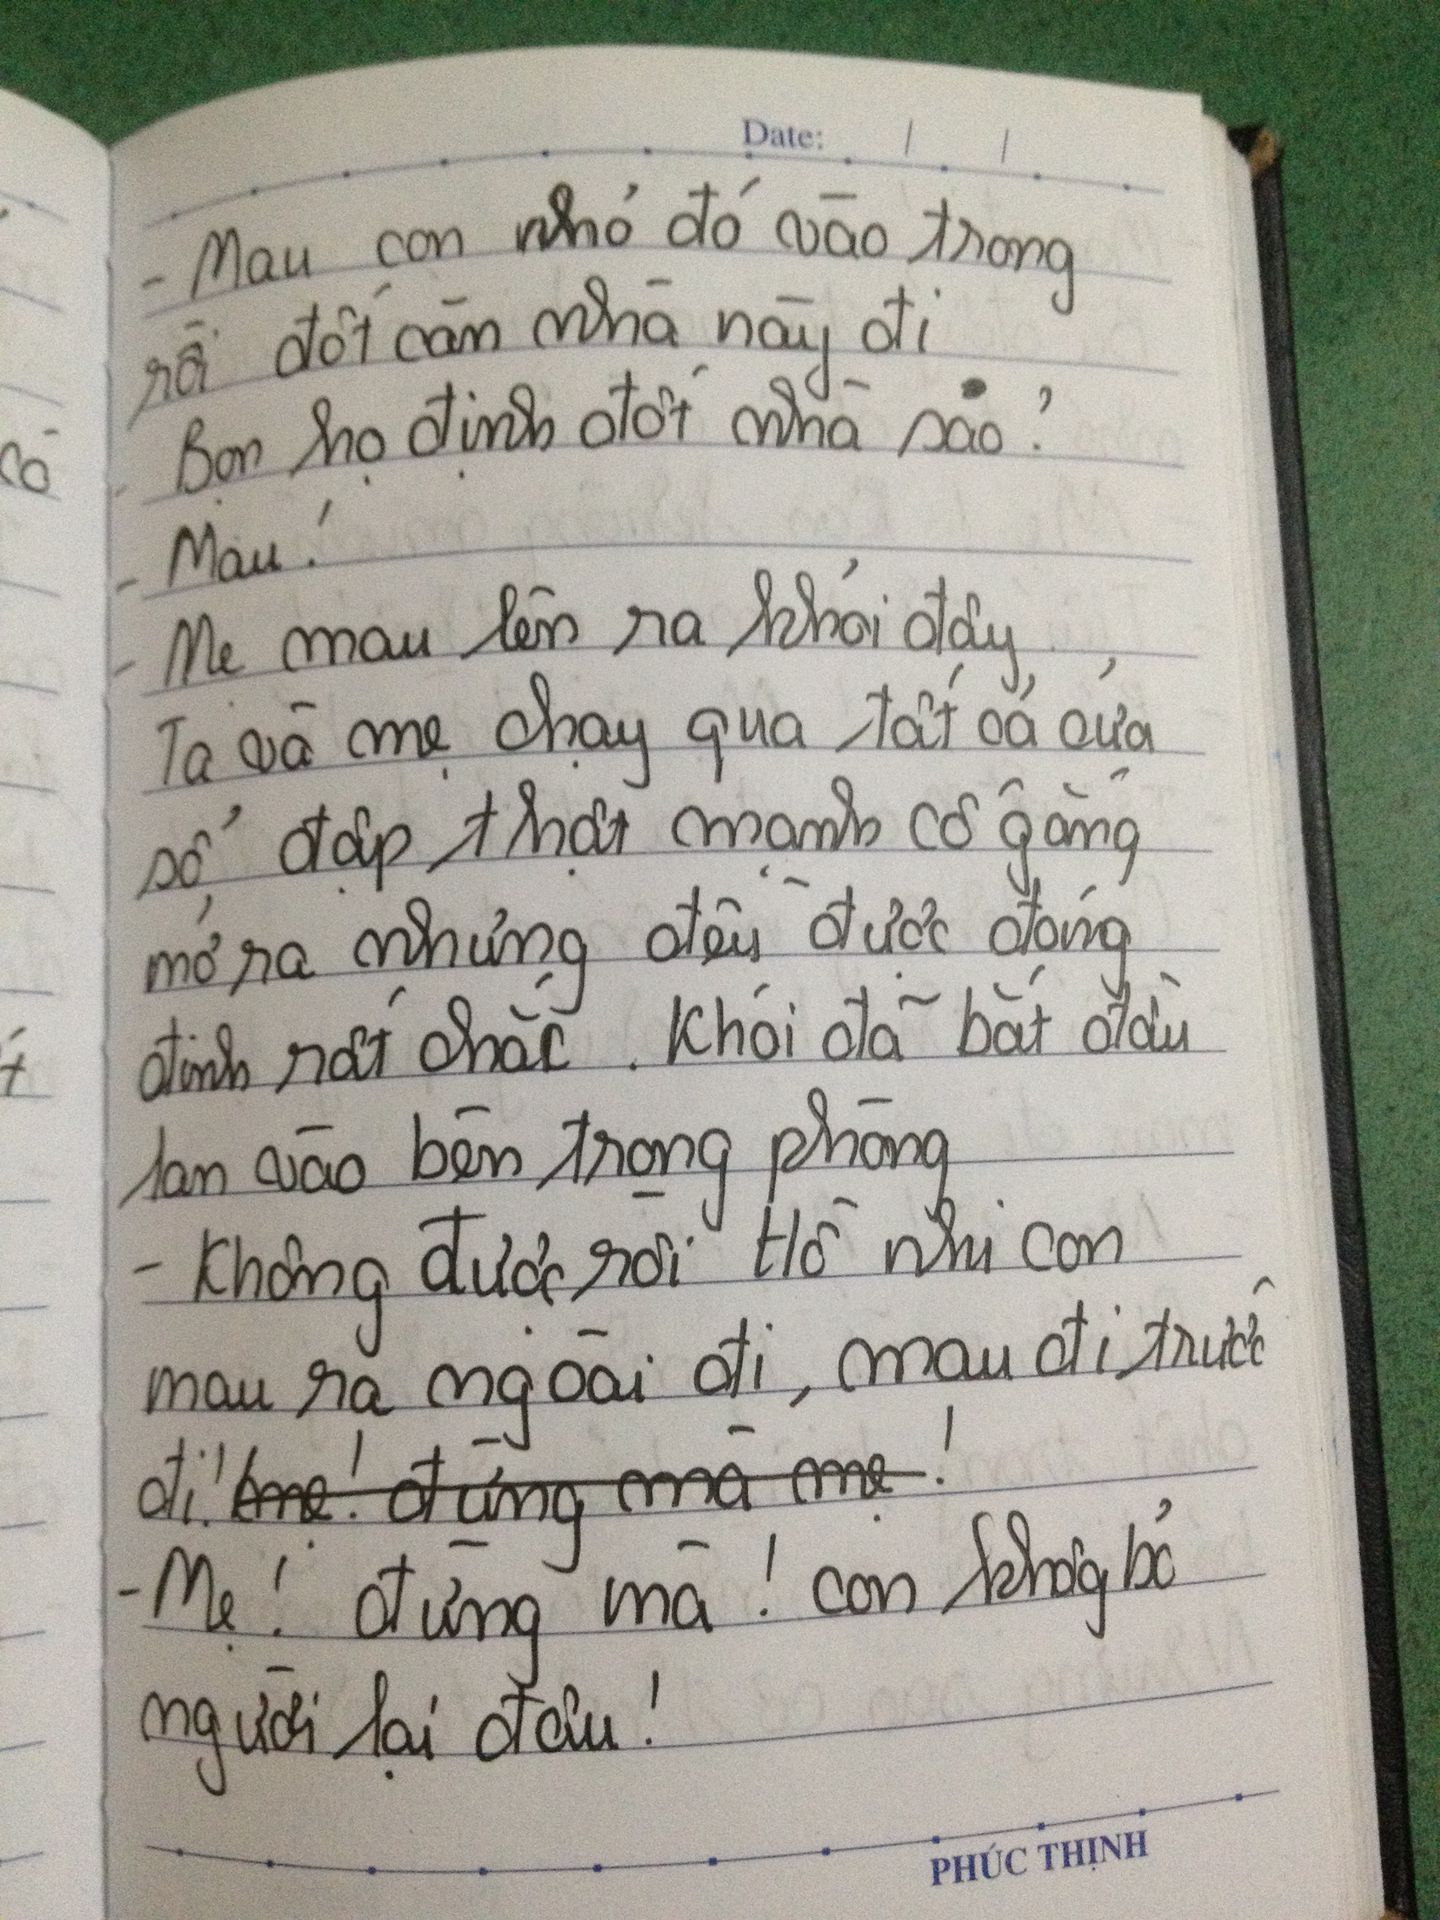 Date: / /
- Mau con nhỏ đó vào trong
rồi đốt căn nhà này đi
Bọn họ định đốt nhà sao?
- Mau!
- Mẹ mau lên ra khỏi đây
Ta và mẹ chạy qua tất cả cửa
sổ đập thật mạnh cố gắng
mở ra nhưng đều được đóng
đinh rất chắc. Khói đã bắt đầu
lan vào bên trong phòng
- Không được rồi Hồ nhi con
mau ra ngoài đi, mau đi trước
đi! mẹ! đừng mà mẹ!
- Mẹ! đừng mà! con không bỏ
người lại đâu!
PHÚC THỊNH